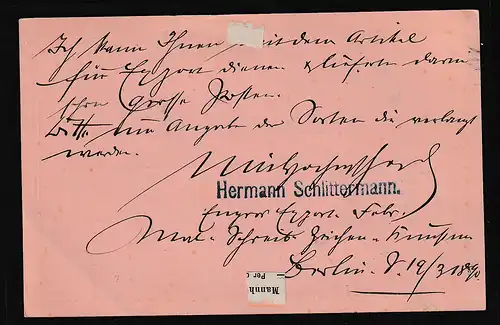 Ich kann Ihnen mit dem Artikel
für Export dienen & lieferte darin
schon grosse Posten.
Bitte um Angabe der Sorten die verlangt
werden.
Hochachtend
Hermann Schlittermann.
Engros Export Fabr.
Mal- Schreib Zeichen-
Berlin. S. 19/3 1890
Mannh
Per